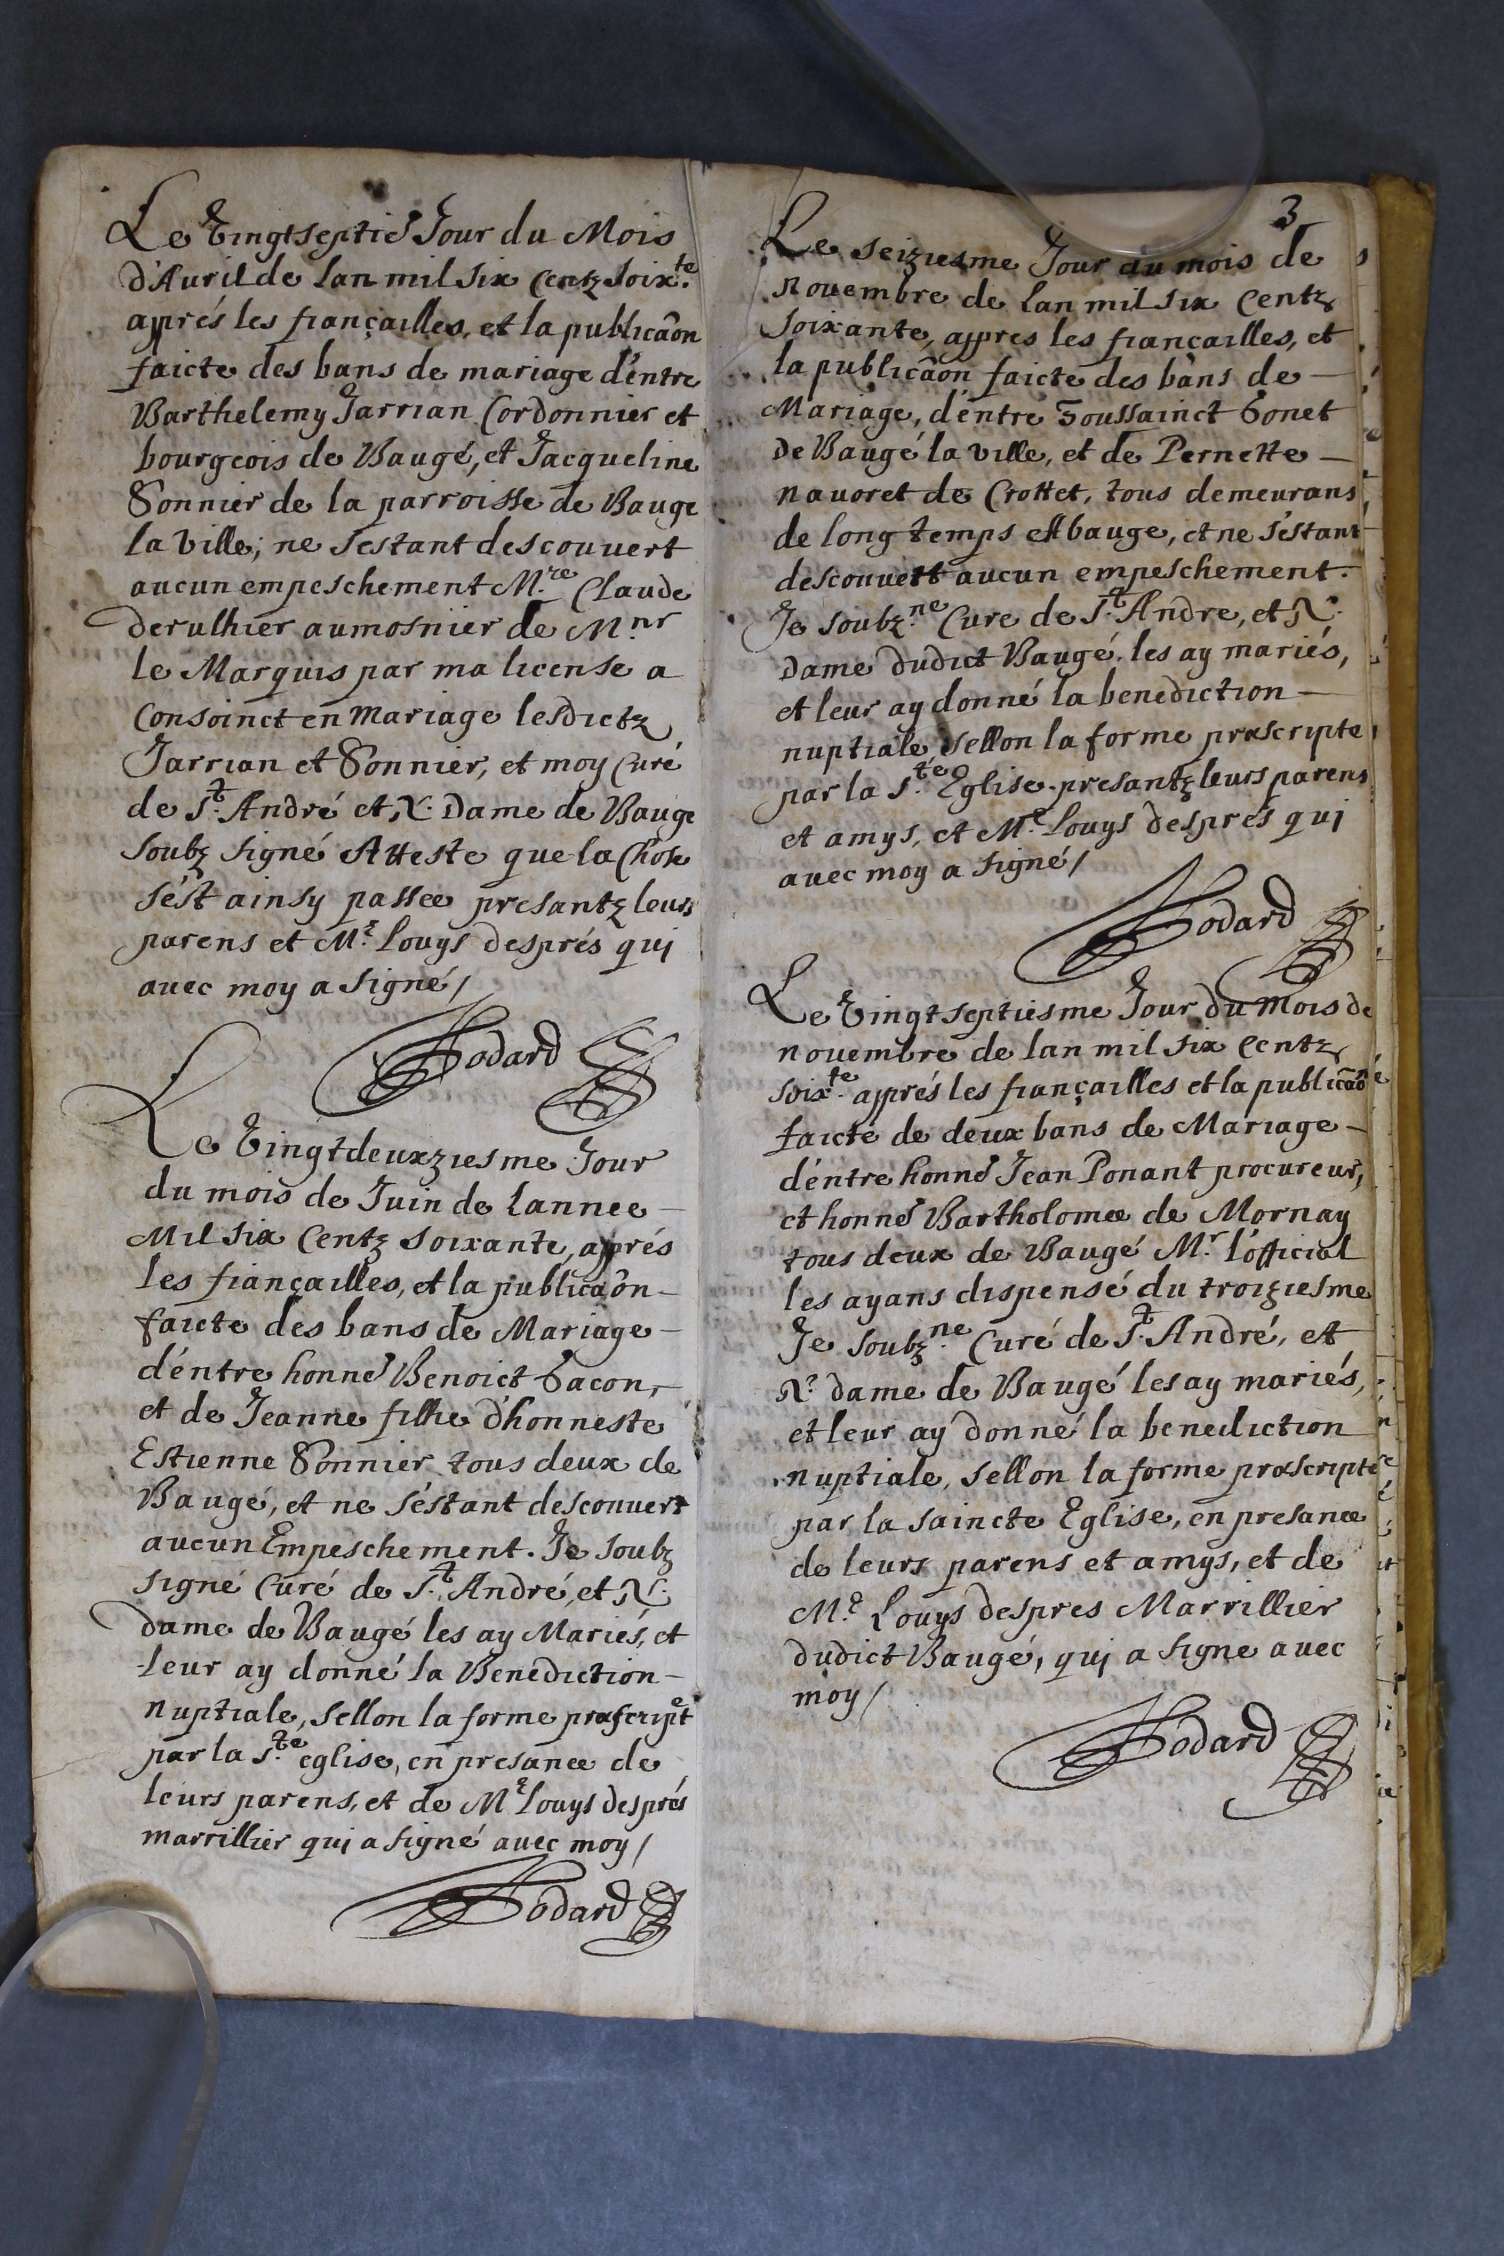 Le Vingtseptie Jour du Mois
d'Auril de Lan mil six Centz soix.te
apprés les fiançailles, et la publicâon
faicte des bans de mariage d'entre
Barthelemy Jarrian Cordonnier et
bourgeois de Baugé, et Jacqueline
Sonnier de la parroisse de Bauge
la Ville; ne s'estant descouvert
aucun empeschement M.re Claude
derulhier aumosnier de M.nr
le Marquis par ma license a
Conjoinct en Mariage lesdictz
Jarrian et Sonnier, et moy Curé
de S.t André et N. Dame de Bauge
soubz signé Atteste que la Chose
s'est ainsy passee presantz leurs
parens et M.e Louys després qui
auec moy a signé/
Hodard
Le Vingtdeuxziesme Jour
du mois de Juin de Lannee
Mil six Centz soixante, apprés
les fiançailles, et la publicâon
faicte des bans de Mariage
d'entre honne Benoict Bacon,
et de Jeanne filhe d'honneste
Estienne Sonnier tous deux de
Baugé, et ne s'éstant descouvert
aucun Empeschement. Je soubz
signé Curé de S.t André, et N.
dame de Baugé les ay Mariés, et
leur ay donné la Benediction
nuptiale, sellon la forme præscripte
par la S.te eglise, en presance de
leurs parens, et de M.e Louys després
marrillier qui a signé auec moy/
Hodard
3
Le seiziesme Jour du mois de
nouembre de Lan mil six Centz
soixante, appres les fiançailles, et
la publicâon faicte des bans de
Mariage, d'entre Toussainct Bonet
de Baugé la ville, et de Pernette
nauoret de Crottet, tous demeurans
de long temps A bauge, et ne s'estant
descouvert aucun empeschement.
Je soubz.ne Cure de S.t Andre, et N.
dame dudict Baugé. les ay mariés,
et leur ay donné la benediction
nuptiale sellon la forme præscripte
par la S.te Eglise. presantz leurs parens
et amys, et M.e Louys després qui
auec moy a signé/
Hodard
Le Vingtseptiesme Jour du Mois de
nouembre de lan mil six Centz
soix.te apprés les fiançailles et la publicâo
faicte de deux bans de Mariage
d'entre honne Jean Ponant procureur,
et honne Bartholomee de Mornay
tous deux de Baugé M.r l'official
les ayans dispensé du troiziesme
Je soubz.ne Curé de S.t André, et
N.e dame de Baugé les ay mariés,
et leur ay donné la benediction
nuptiale, sellon la forme præscripte
par la saincte Eglise, en presance
de leurs parens et amys, et de
M.e Louys despres Marrillier
dudict Baugé, qui a signe avec
moy/
Hodard